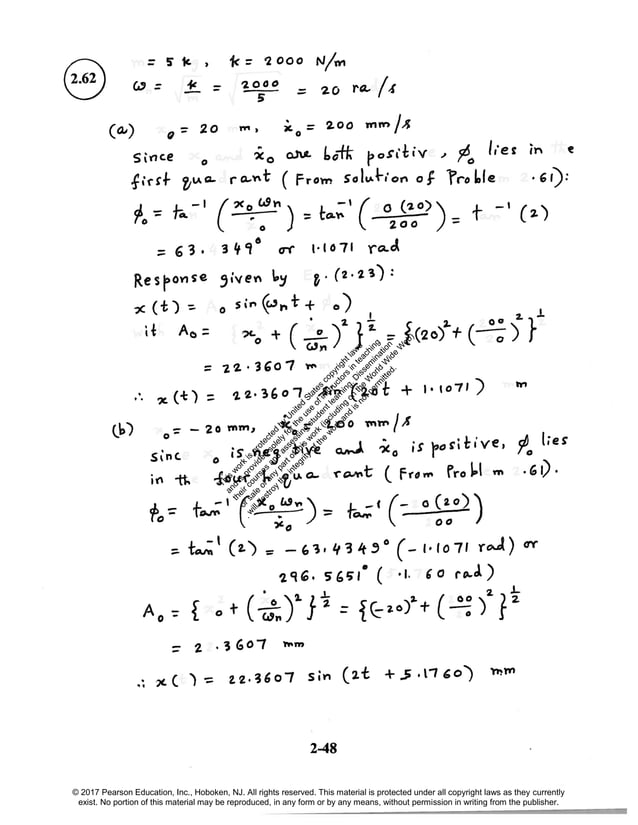 2.62
= 5 k , k = 2000 N/m
ω = √(k/m) = √(2000/5) = 20 ra /s
(a) x₀ = 20 m, ẋ₀ = 200 mm/s
Since x₀ and ẋ₀ are both positiv , ϕ₀ lies in the
first qua rant (From solution of Proble 2.61):
ϕ₀ = ta⁻¹ (x₀ ωn / ₀) = tan⁻¹ ( 0 (20) / 200) = t ⁻¹ (2)
= 63.4349° or 1.1071 rad
Response given by Eq. (2.23):
x(t) = A₀ sin (ωn t + ϕ₀)
wit A₀ = x₀ + (ẋ₀/ωn)² }^½ = {(20)² + ( 00 / 0)² }^½
= 22.3607 m
∴ x(t) = 22.3607 sin (20t + 1.1071) m
(b) ₀ = - 20 mm, ẋ₀ = 200 mm/s
Sinc ₀ is negative and ẋ₀ is positive, ϕ₀ lies
in th fourth qua rant (From Probl m 2.61).
ϕ₀ = tan⁻¹ (x₀ ωn / ẋ₀) = tan⁻¹ (- 0 (20) / 00)
= tan⁻¹ (2) = -63.4349° (-1.1071 rad) or
296.5651° ( .1 60 rad)
A₀ = { ₀ + ( ₀/ωn)² }^½ = {(-20)² + ( 00 / 0)² }^½
= 2 .3607 mm
∴ x( ) = 22.3607 sin (2 t + 5.1760) mm
This work is protected by United States copyright laws
and is provided solely for the use of instructors in teaching
their courses and assessing student learning. Dissemination
or sale of any part of this work (including on the World Wide Web)
will destroy the integrity of the work and is not permitted.
2-48
© 2017 Pearson Education, Inc., Hoboken, NJ. All rights reserved. This material is protected under all copyright laws as they currently
exist. No portion of this material may be reproduced, in any form or by any means, without permission in writing from the publisher.